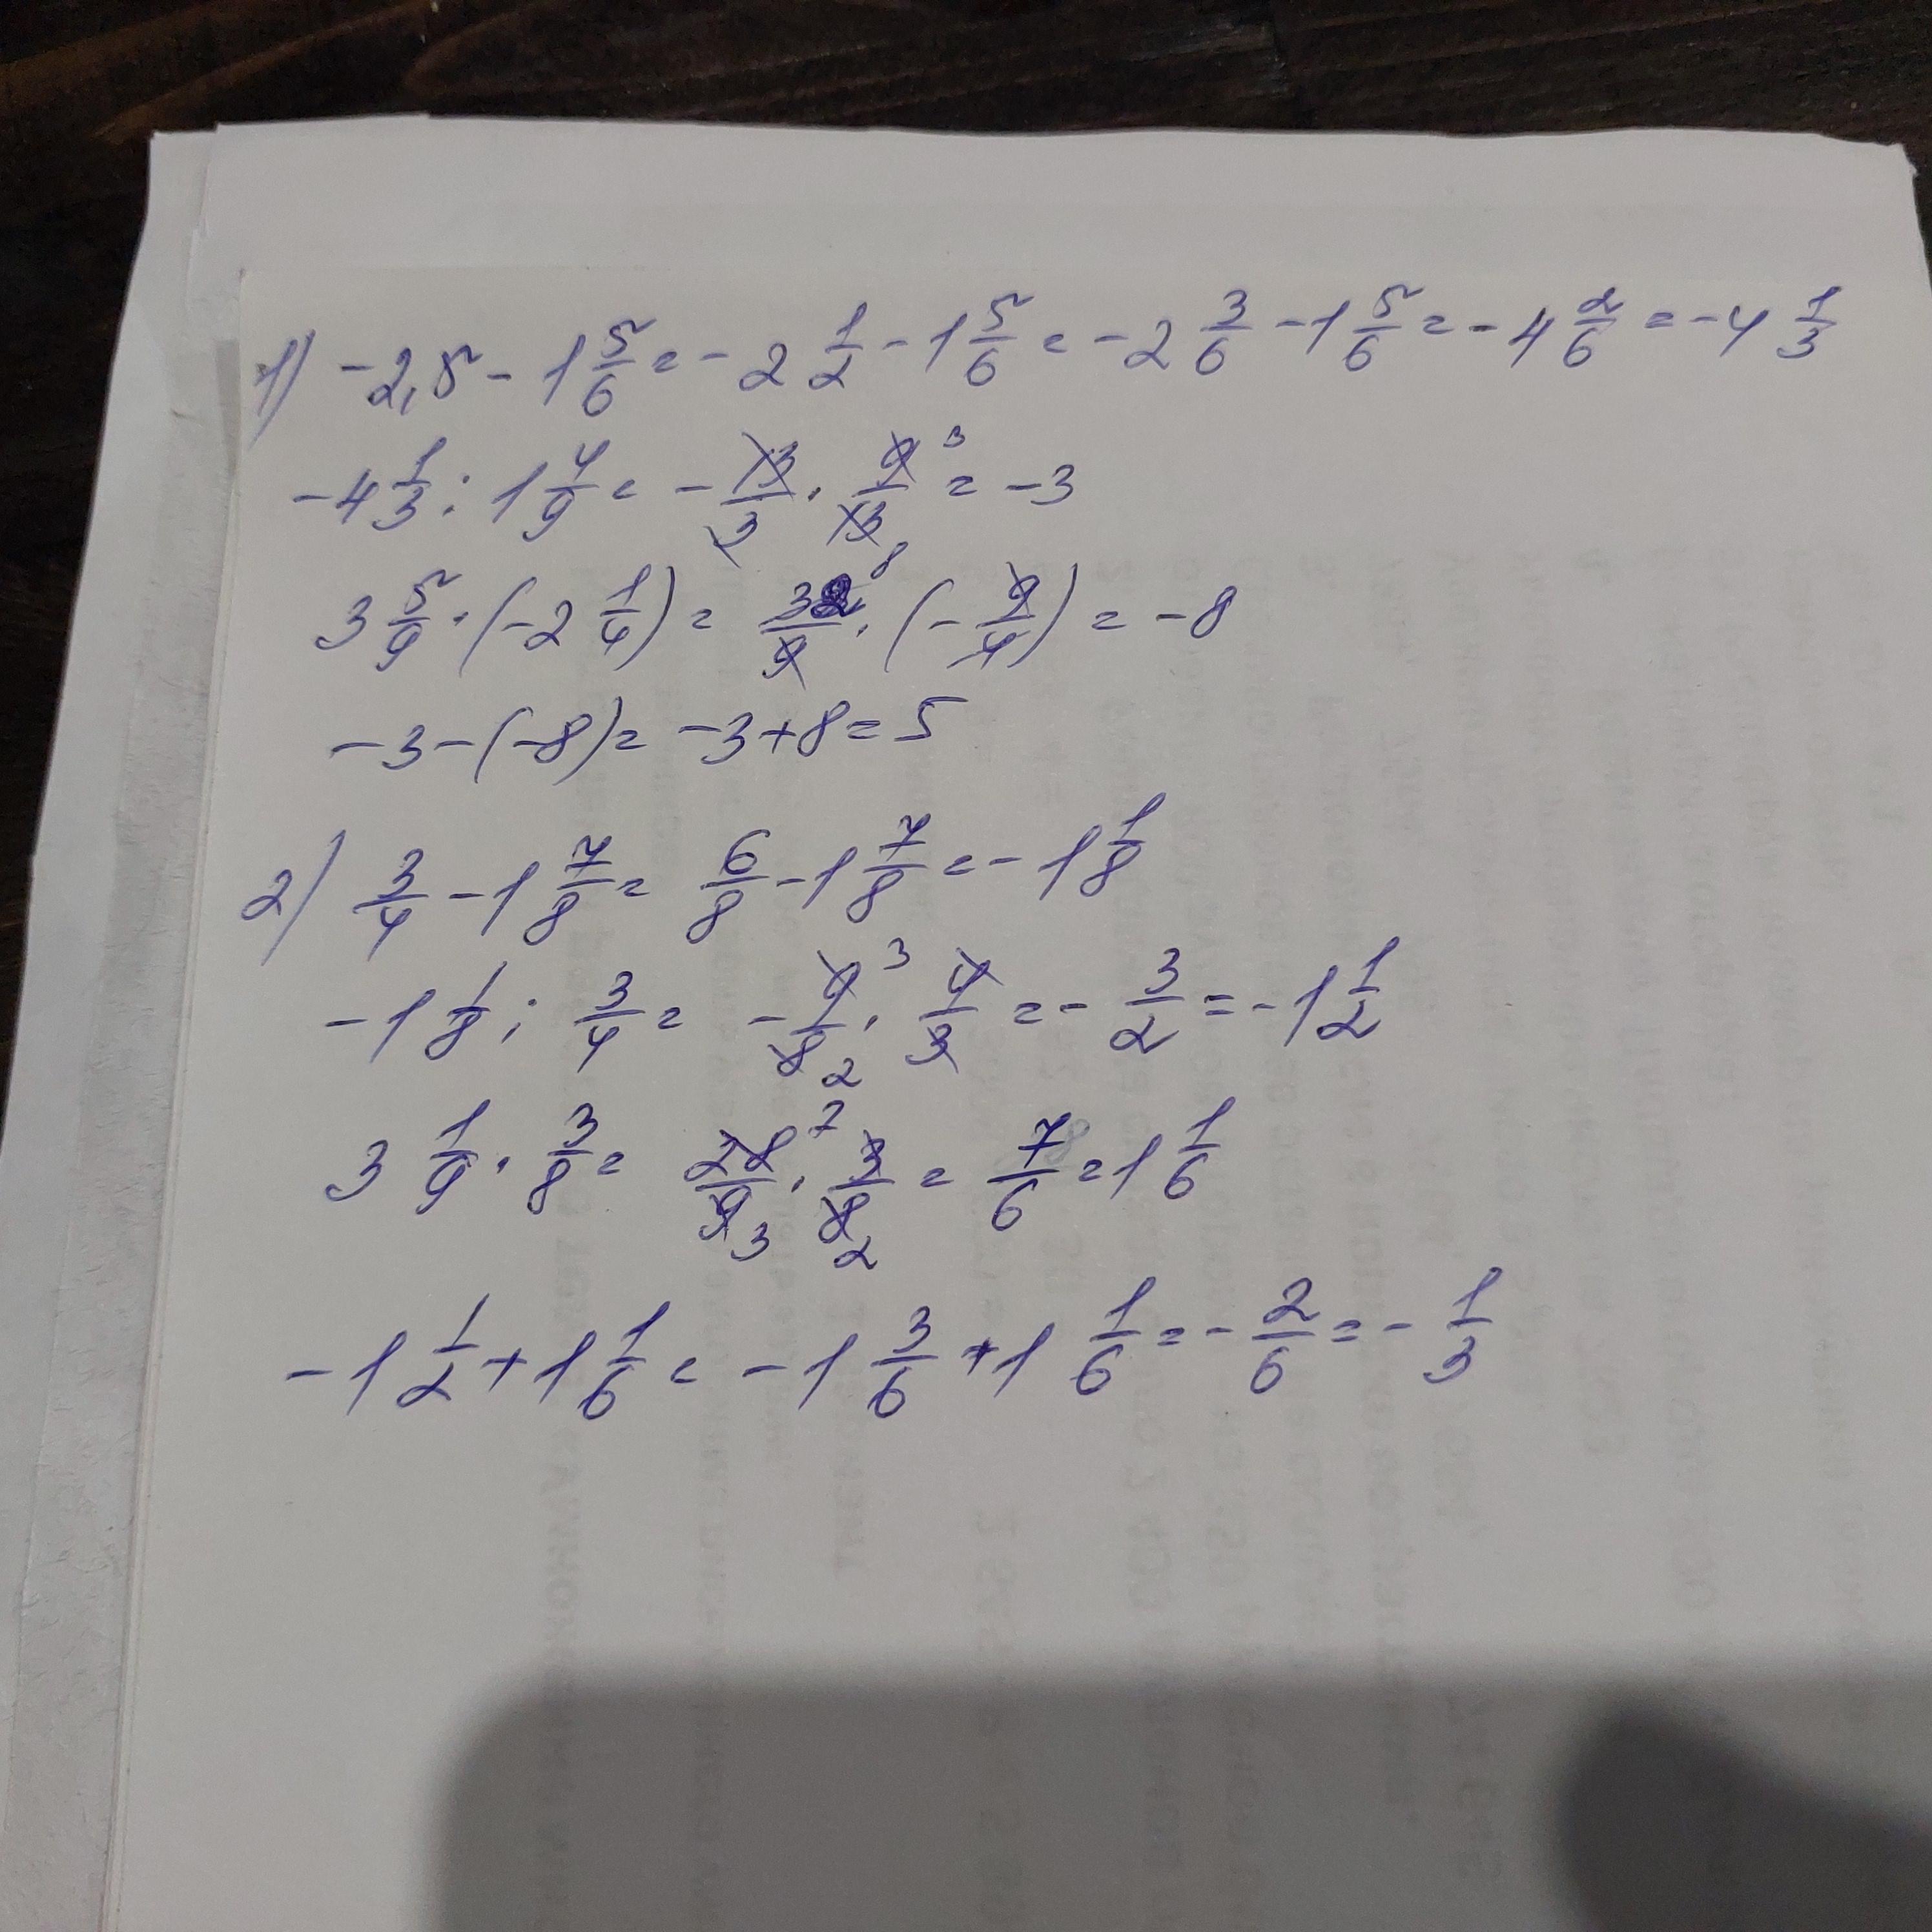 1) -2,5 - 1 5/6 = -2 1/2 - 1 5/6 = -2 3/6 - 1 5/6 = -4 2/6 = -4 1/3
-4 1/3 : 1 4/9 = -13/3 · 9/13 3 = -3
3 5/9 · (-2 1/4) = 32/9 8 · (-9/4) = -8
-3 - (-8) = -3 + 8 = 5
2) 3/4 - 1 7/8 = 6/8 - 1 7/8 = -1 1/8
-1 1/8 : 3/4 = -9/8 3 2 · 4/3 = -3/2 = -1 1/2
3 1/9 · 3/8 = 28/9 7 3 · 3/8 2 = 7/6 = 1 1/6
-1 1/2 + 1 1/6 = -1 3/6 + 1 1/6 = -2/6 = -1/3